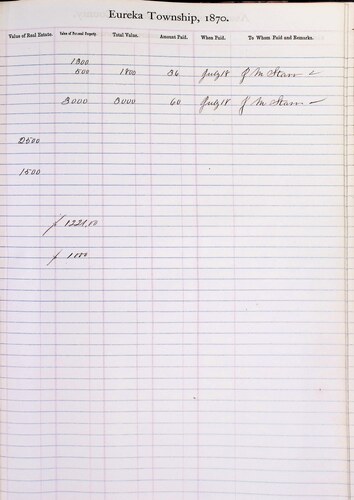 Eureka Township, 1870.
Value of Real Estate. Value of Personal Property. Total Value. Amount Paid. When Paid. To Whom Paid and Remarks.
1300
500 1800 36 July 18 J M Starr
3000 3000 60 July 18 J M Starr
2500
1500
1221.50
1000